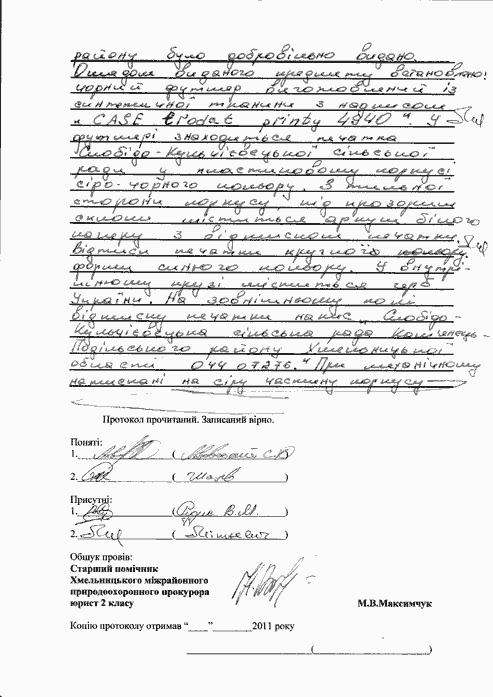 району було добровільно видано.
Оглядом виданого предмету встановлено:
чорний футляр виготовлений із
синтетичної тканини з надписом
"CASE trodat printy 4940". У
футлярі знаходиться печатка
Слобідо-Кульчієвецької сільської
ради у пластиковому корпусі
сіро-чорного кольору. З тильної
сторони корпусу, під прозорим
склом міститься аркуш білого
паперу з відтиском печатки.
Відтиски печатки круглого кольору.
форми синього кольору. У внутрі-
шньому крузі міститься герб
України. На зовнішньому полі
відтиску печатки напис "Слобідо-
Кульчієвецька сільська рада Кам'янець-
Подільського району Хмельницької
області 04407276." При механічному
натисканні на сіру частину корпусу
Протокол прочитаний. Записаний вірно.
Поняті:
1. ( )
2. ( )
Присутні:
1. ( В.М. )
2. ( )
Обшук провів:
Старший помічник
Хмельницького міжрайонного
природоохоронного прокурора
юрист 2 класу М.В.Максимчук
Копію протоколу отримав "____"________2011 року
( )